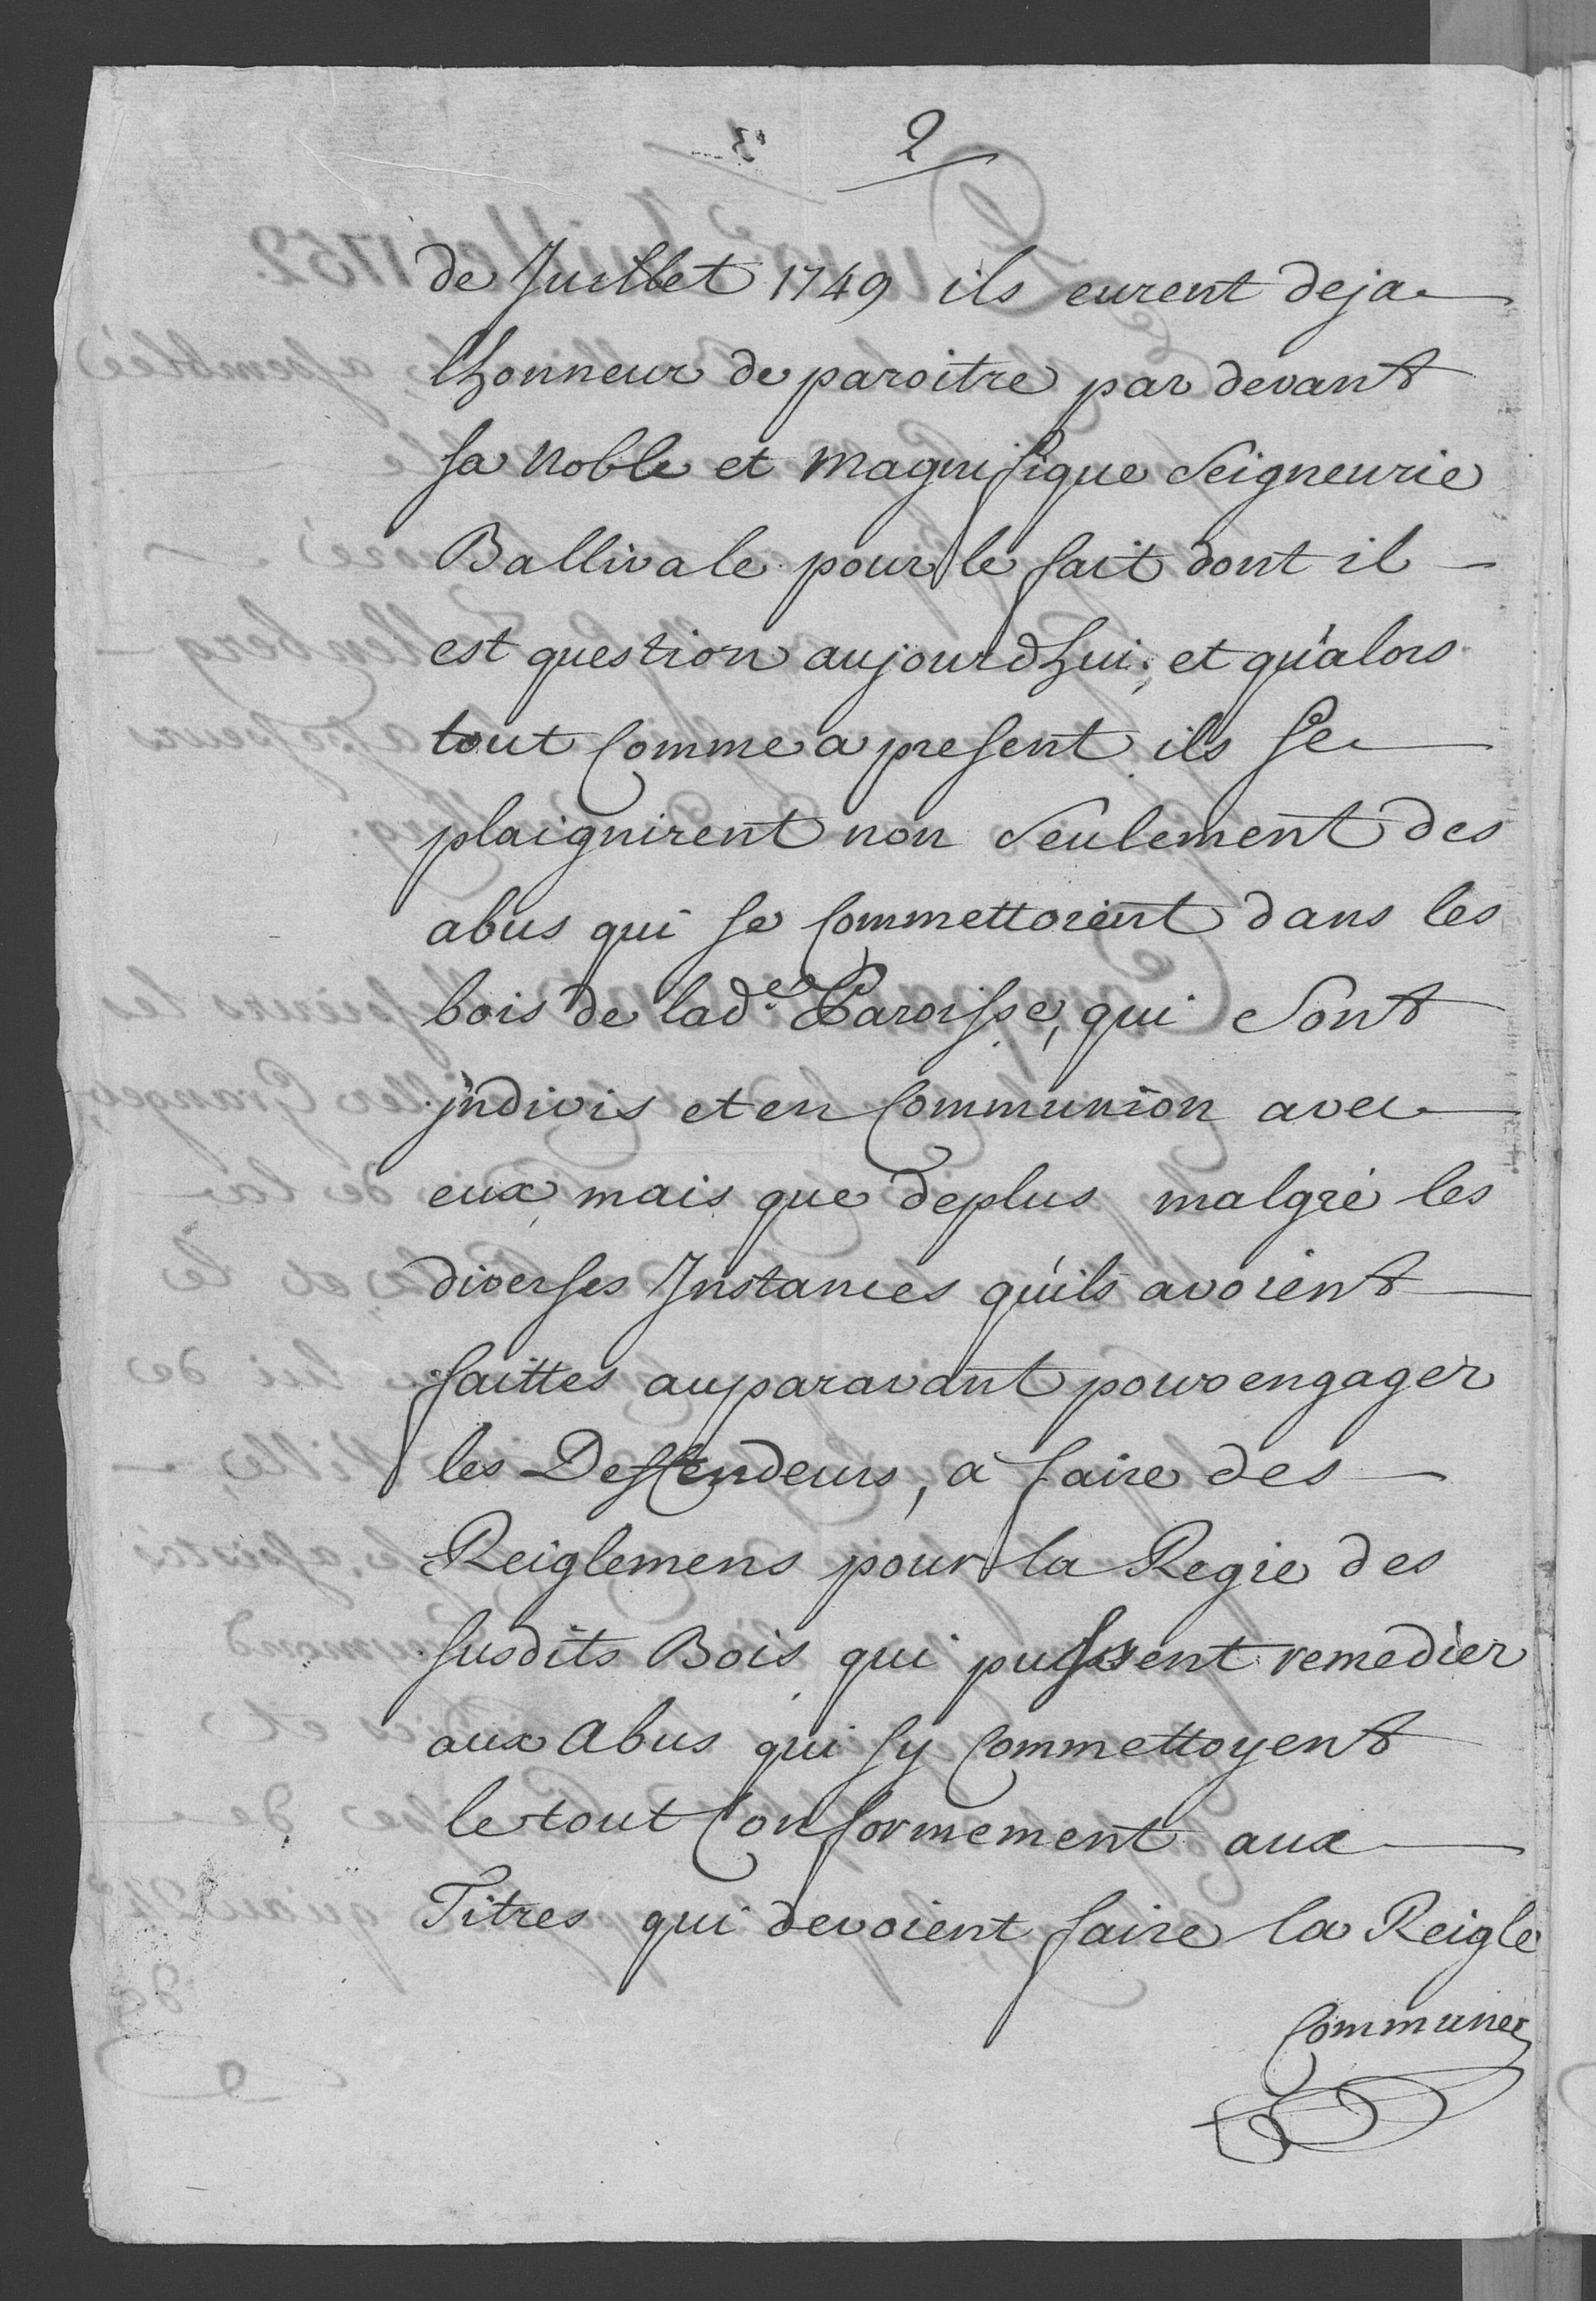 2
de Juillet 1749 ils eurent deja
lhonneur de paroitre par devant
sa Noble et Magnifique Seigneurie
Ballivale pour le fait dont il
est question aujourdhui; et qu'alors
tout comme a present ils se
plaignirent non seulement des
abus qui se commettoient dans les
bois de lad.e Paroisse, qui sont
jndivis et en Communion avec
eux mais que deplus malgré les
diverses Instances qu'ils avoient
faittes auparavant pour engager
les Deffendeurs, à faire des
Reiglemens pour la Regie des
susdits Bois qui pussent remedier
aux Abus qui sy commettoyent
le tout Conformement aux
Titres qui devoient faire la Reigle